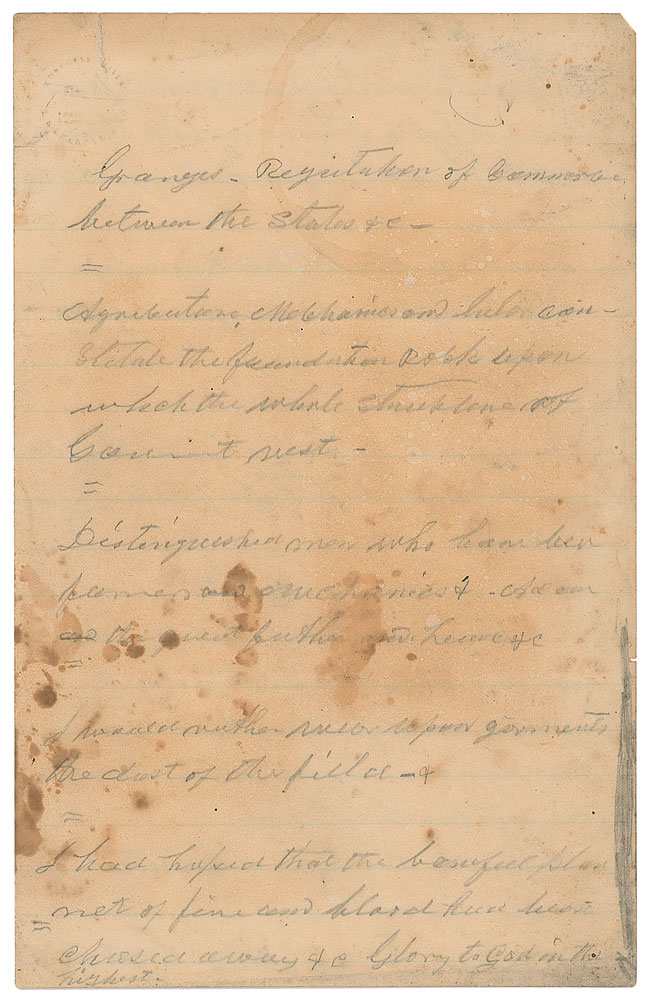 Granges - Regulation of Commerce
between the States &c -
=
Agriculture, Mechanics and labor con-
stitute the foundation Rock upon
which the whole structure of
Goverment rest -
=
Distinguished men who have been
farmers and mechanics & -
the great father &c
=
I would rather wear upon garments
the dust of the field - &
=
I had hoped that the baneful pla
net of fire and blood had been
=
chased away &c Glory to God in the
highest.